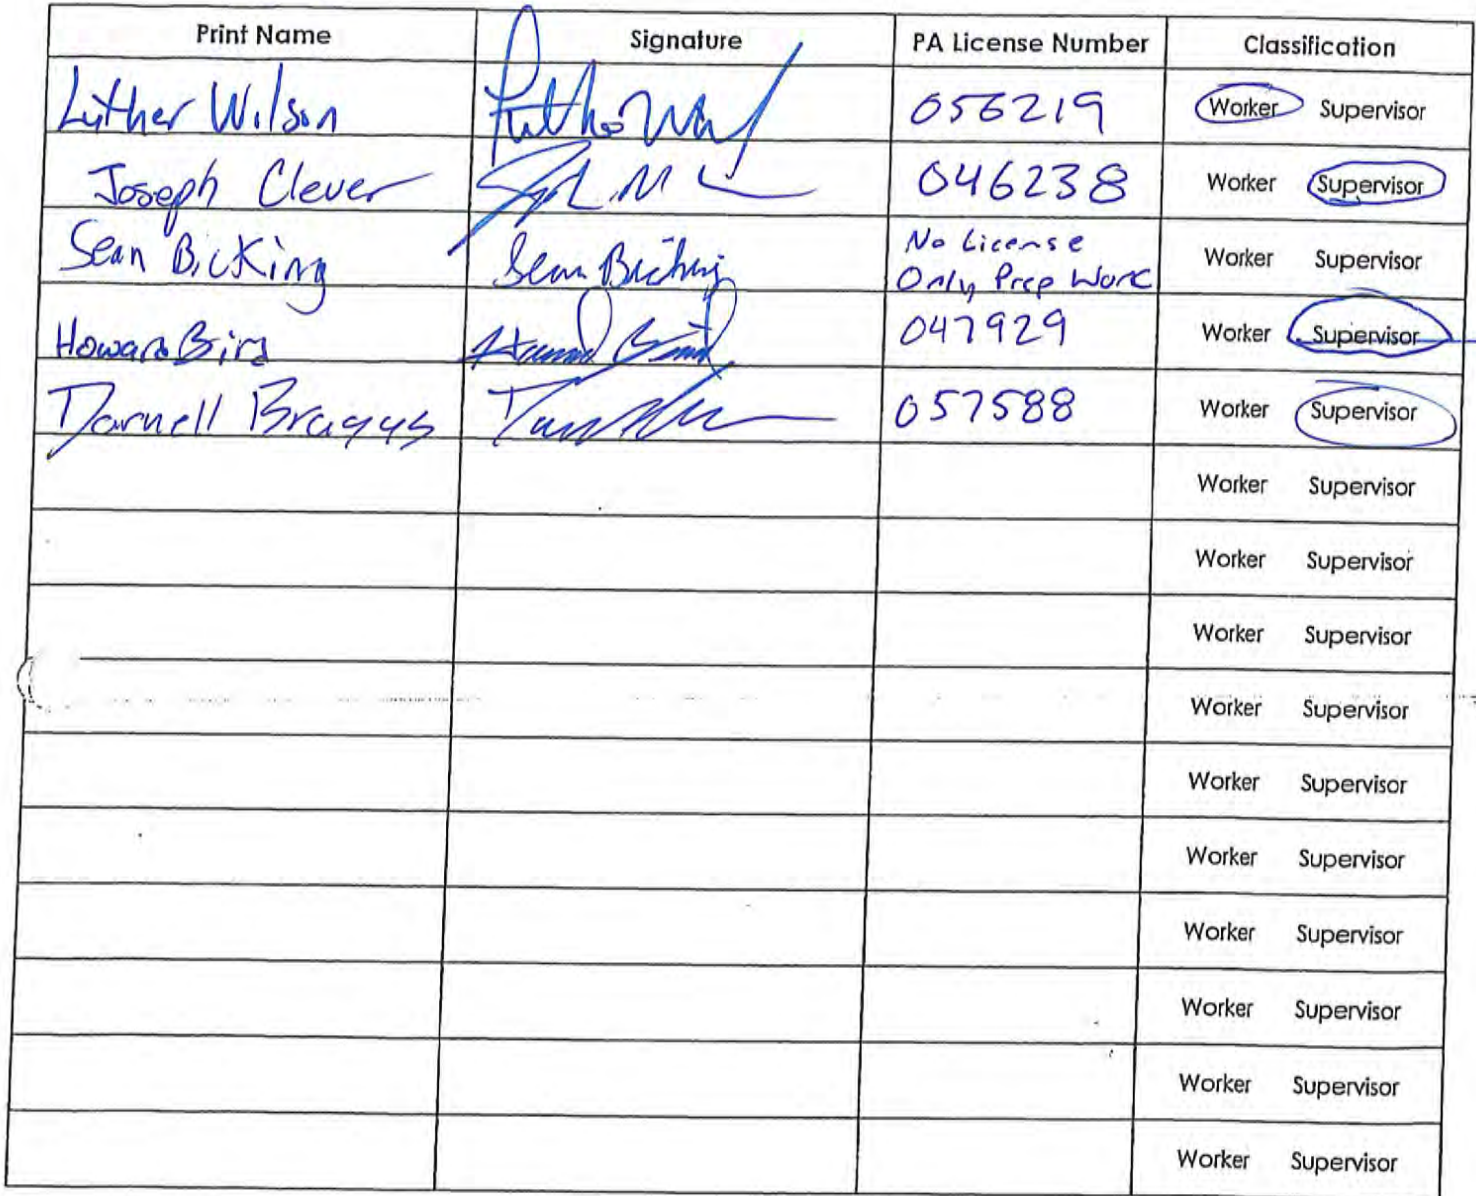 Print Name Signature PA License Number Classification
Luther Wilson 056219 Worker Supervisor
Joseph Clever 046238 Worker Supervisor
Sean Bicking Sean Bicking No License Only Prep Work Worker Supervisor
Howard Bird Howard Bird 047929 Worker Supervisor
Darnell Braggs 057588 Worker Supervisor
Worker Supervisor
Worker Supervisor
Worker Supervisor
Worker Supervisor
Worker Supervisor
Worker Supervisor
Worker Supervisor
Worker Supervisor
Worker Supervisor
Worker Supervisor